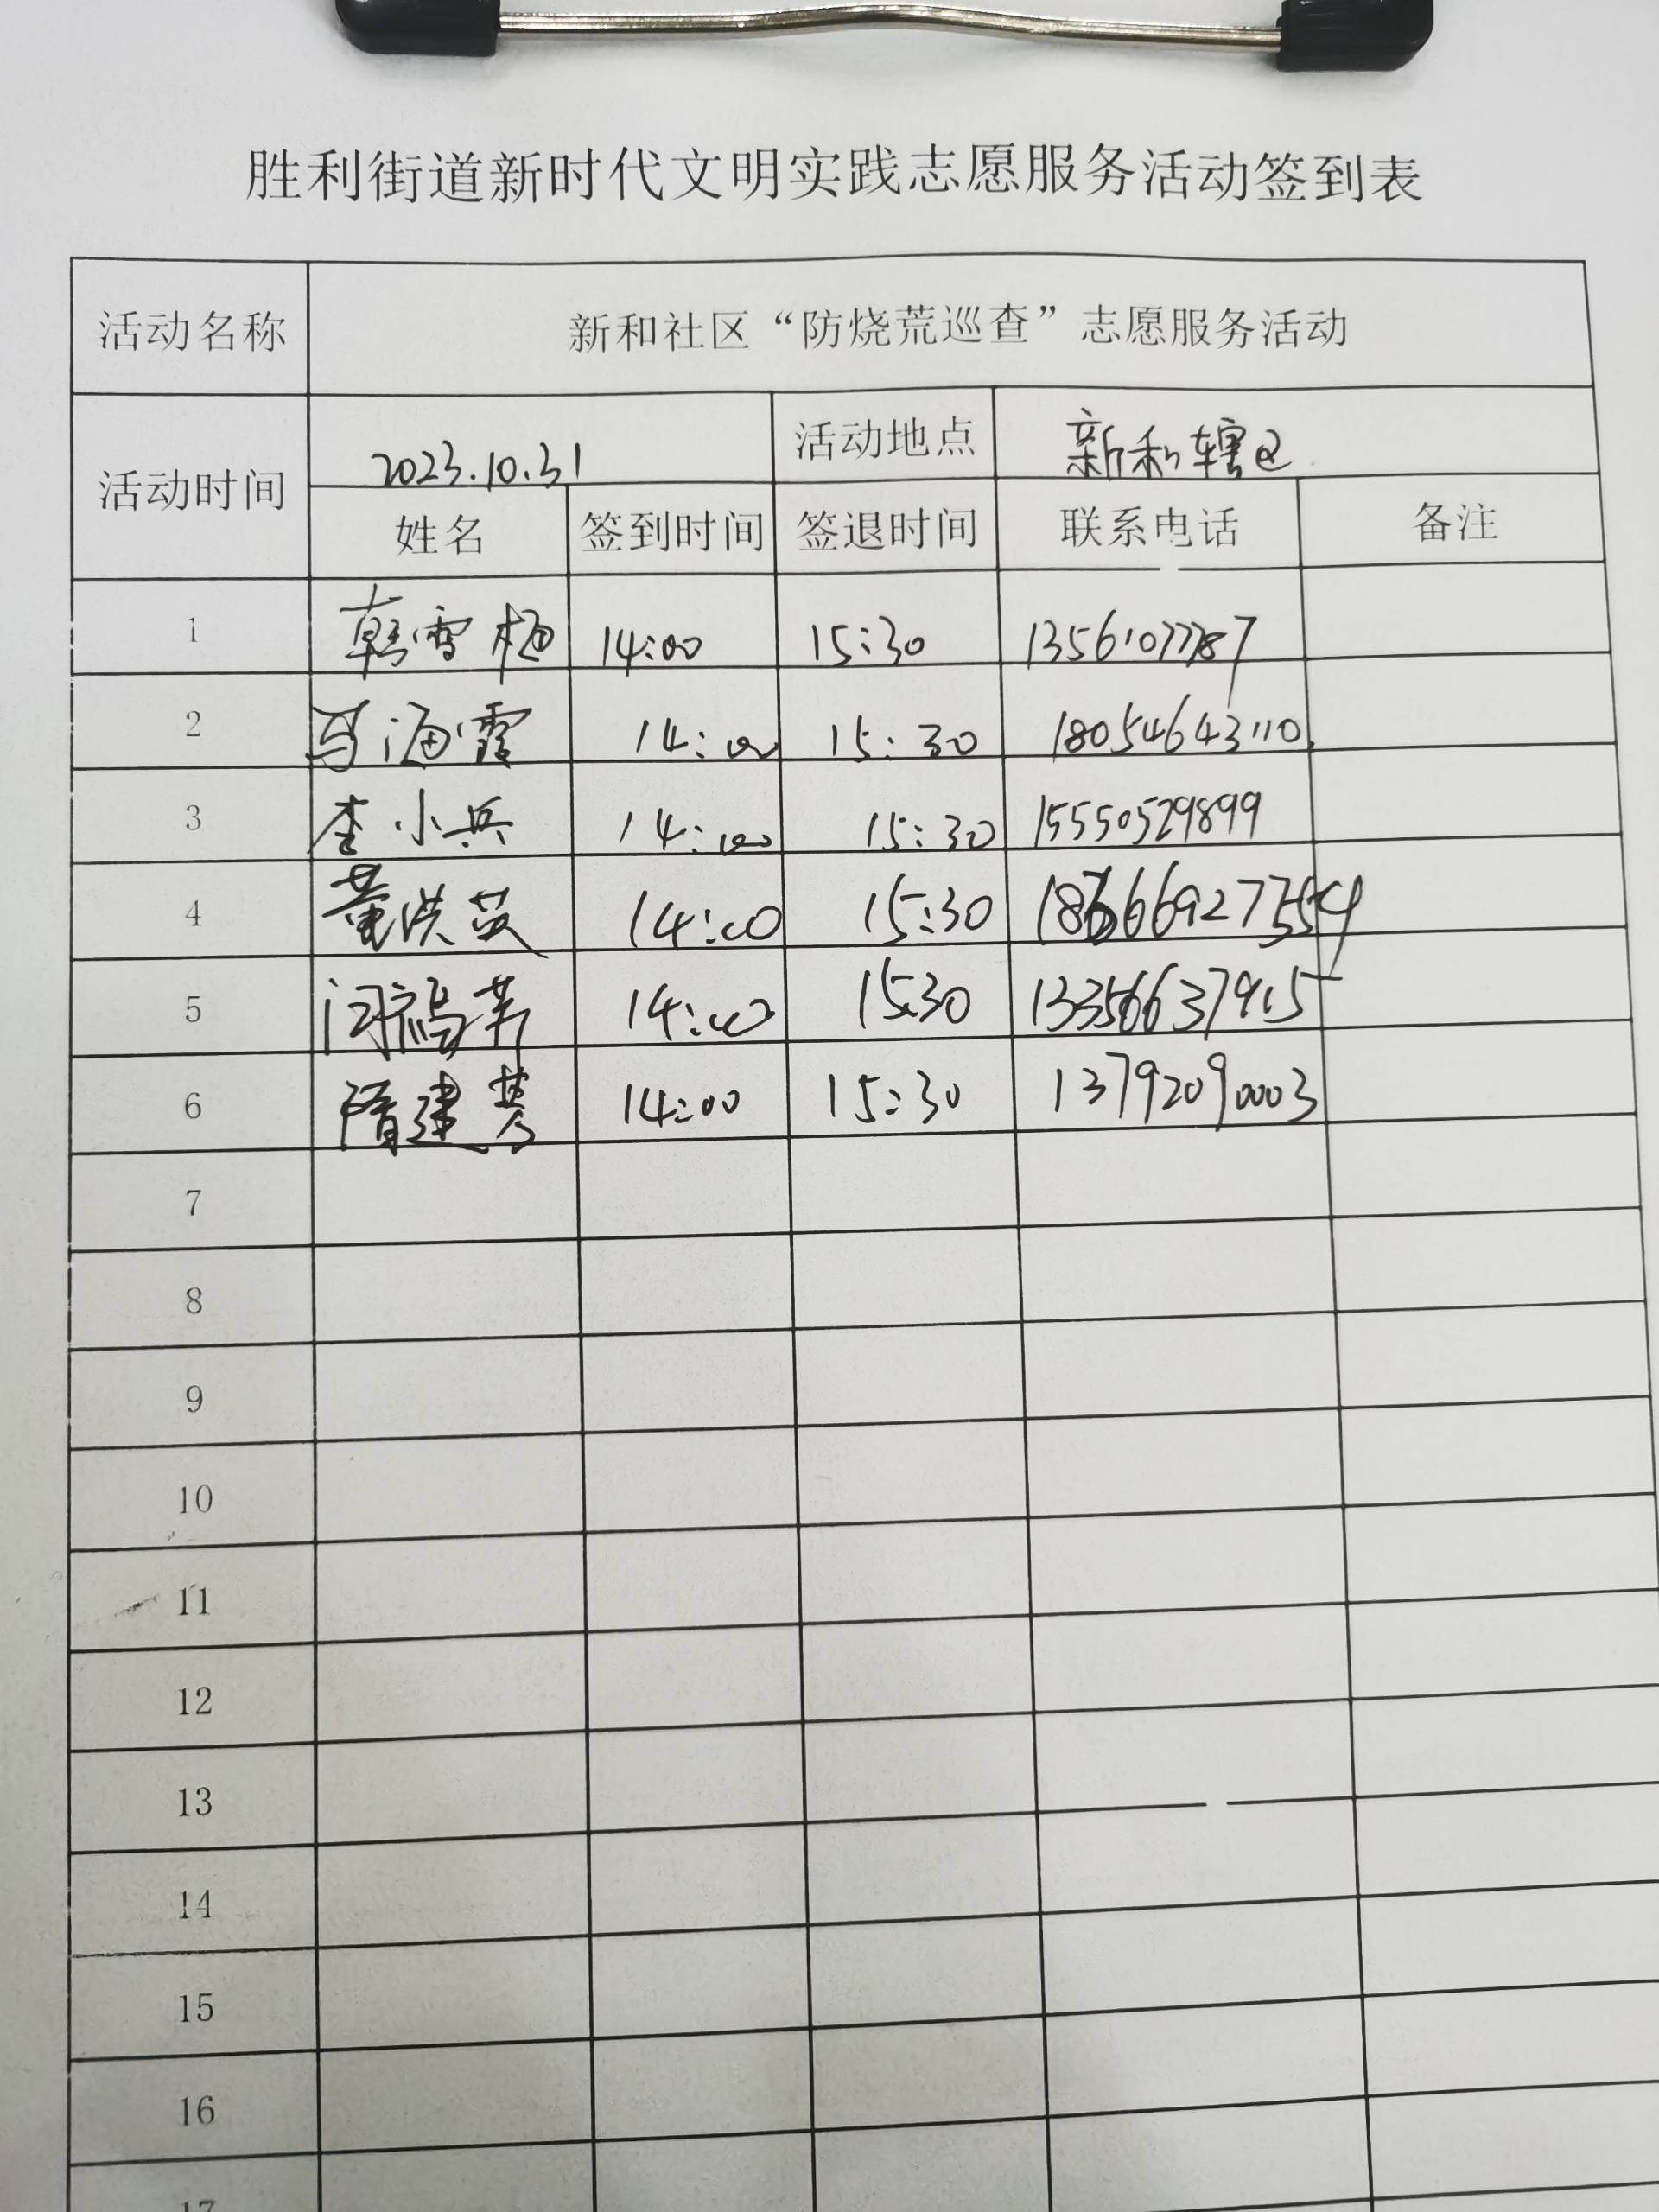 胜利街道新时代文明实践志愿服务活动签到表
活动名称 新和社区“防烧荒巡查”志愿服务活动
活动时间 2023.10.31 活动地点 新和辖区
姓名 签到时间 签退时间 联系电话 备注
1 韩雪梅 14:00 15:30 13561077787
2 马海霞 14:00 15:30 18054643110
3 李小兵 14:00 15:30 15550529899
4 董洪英 14:00 15:30
5 闫福芾 14:00 15:30 13356637915
6 隋建梦 14:00 15:30 13792090003
7
8
9
10
11
12
13
14
15
16
17